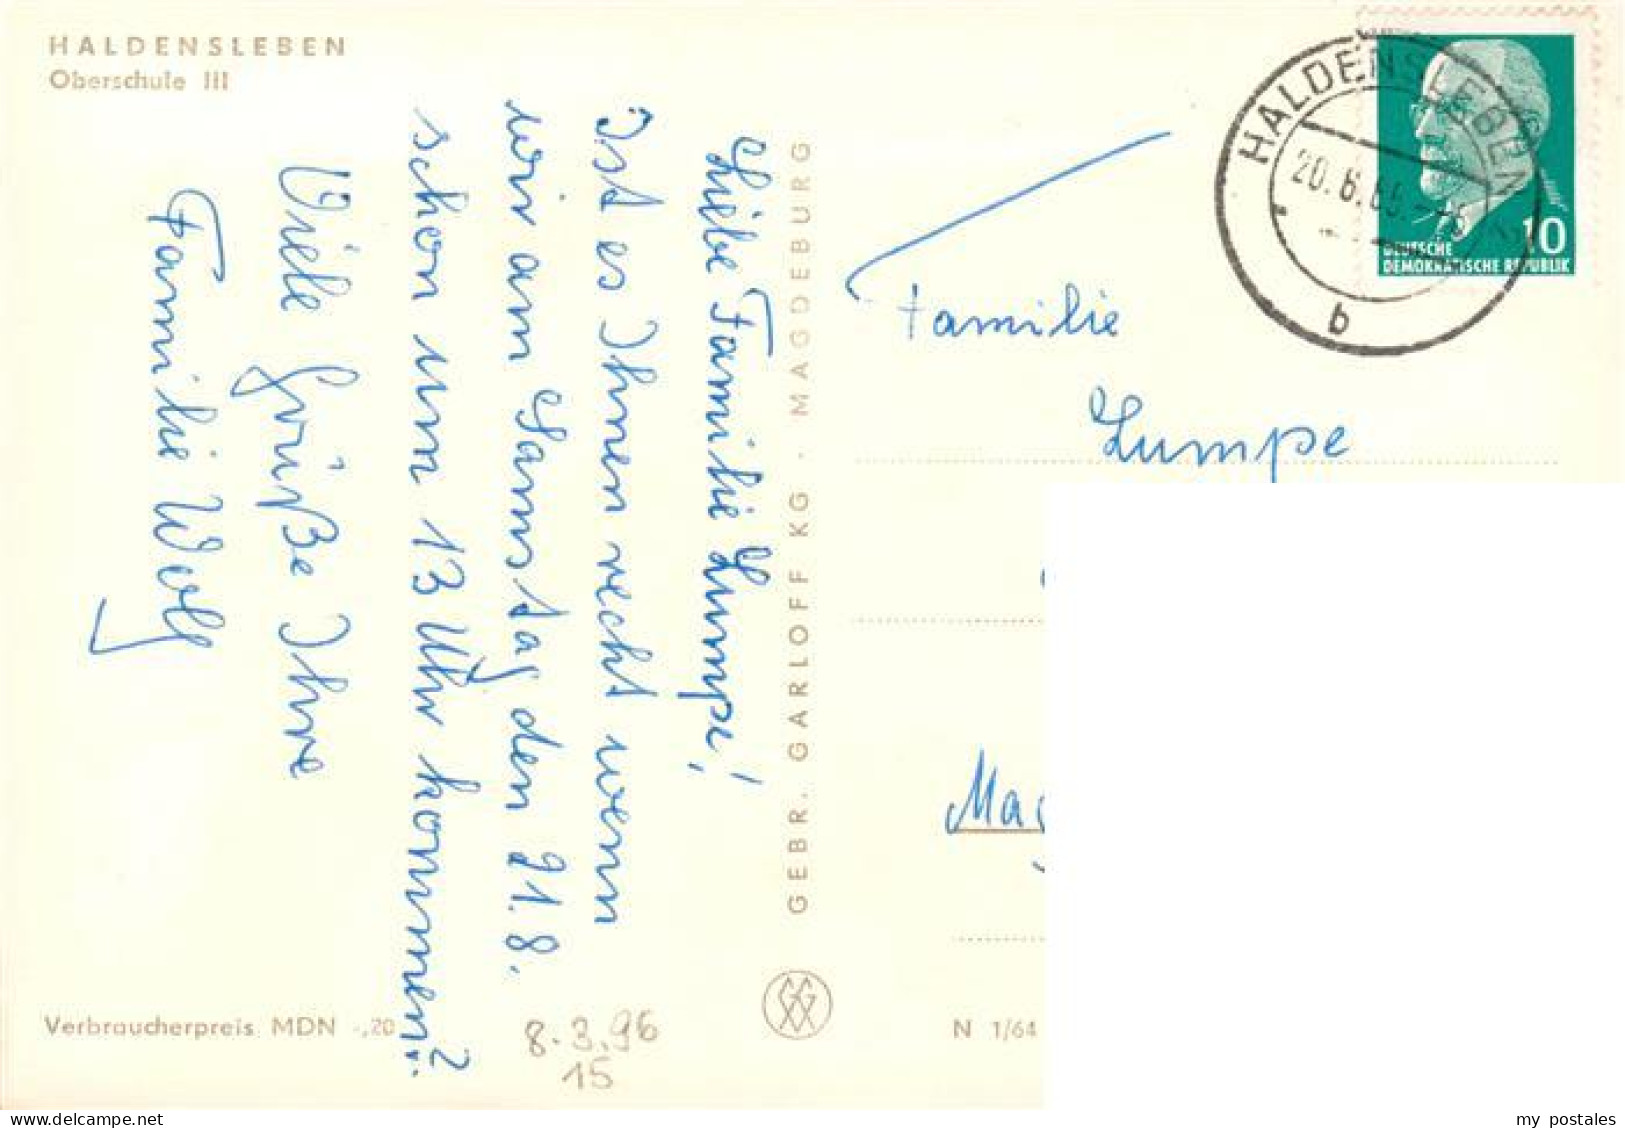 HALDENSLEBEN
Oberschule III
Liebe Familie Lumpe!
Ist es Ihnen recht wenn
wir am Samstag den 21.8.
schon um 13 Uhr kommen?
Viele Grüße Ihre
Familie Wolf
GEBR. GARLOFF KG · MAGDEBURG
Verbraucherpreis MDN -,20
8.3.96
15
N 1/64
HALDENSLEBEN
b
10
DEUTSCHE
DEMOKRATISCHE REPUBLIK
Familie
Lumpe
my postales